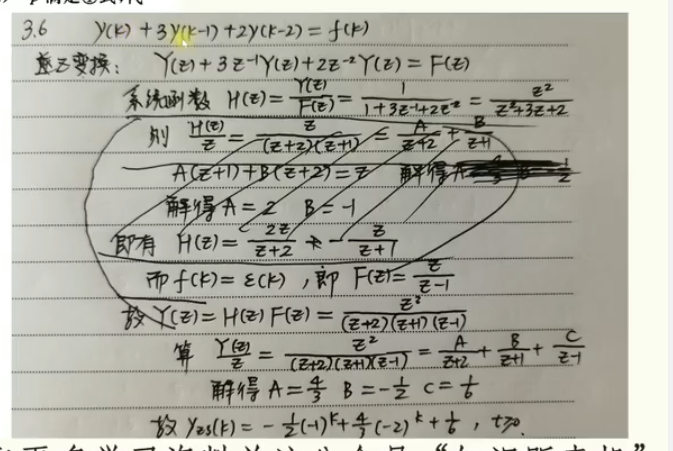 3.6 y(k) + 3y(k-1) + 2y(k-2) = f(k)
z变换: Y(z) + 3z⁻¹Y(z) + 2z⁻²Y(z) = F(z)
系统函数 H(z) = Y(z)/F(z) = 1/(1+3z⁻¹+2z⁻²) = z²/(z²+3z+2)
则 H(z)/z = z/((z+2)(z+1)) = A/(z+2) + B/(z+1)
A(z+1)+B(z+2)=z 解得A
解得A=2 B=-1
即有 H(z) = 2z/(z+2) - z/(z+1)
而f(k)=ε(k), 即 F(z)=z/(z-1)
故 Y(z)=H(z)F(z)= z³/((z+2)(z+1)(z-1))
算 Y(z)/z = z²/((z+2)(z+1)(z-1)) = A/(z+2) + B/(z+1) + C/(z-1)
解得 A=4/3 B=-1/2 C=1/6
故 yzs(k) = -1/2(-1)ᵏ+4/3(-2)ᵏ+1/6, t≥0.